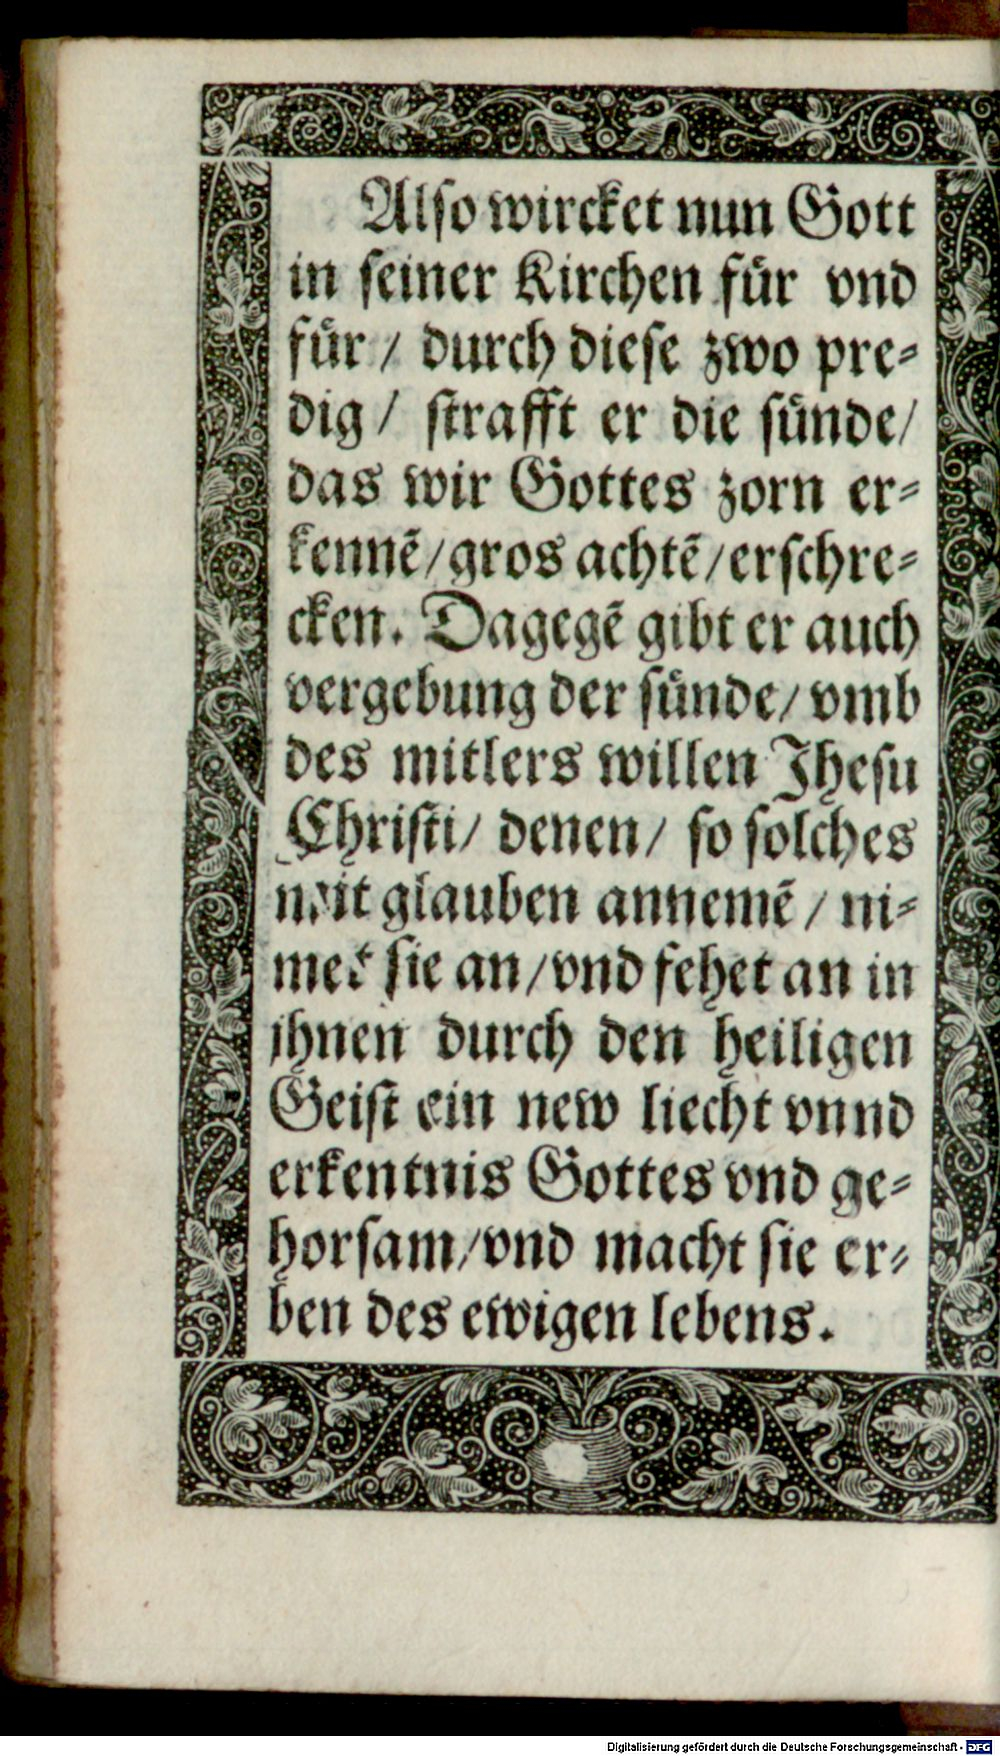 Also wircket nun Gott
in seiner Kirchen für vnd
für / durch diese zwo pre-
dig / strafft er die sünde/
das wir Gottes zorn er-
kennẽ/gros achtẽ/erschre-
cken. Dagegẽ gibt er auch
vergebung der sünde/ vmb
des mitlers willen Jhesu
Christi/ denen/ so solches
mit glauben annemẽ / ni-
met sie an/vnd fehet an in
jhnen durch den heiligen
Geist ein new liecht vnnd
erkentnis Gottes vnd ge-
horsam/vnd macht sie er-
ben des ewigen lebens.
Digitalisierung gefördert durch die Deutsche Forschungsgemeinschaft - DFG